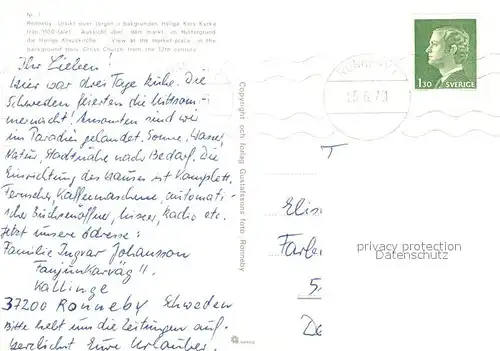 Nr. 1
Ronneby. Utsikt över torget, i bakgrunden Heliga Kors Kyrka
från 1100-talet. Aussicht über den markt, im Huttergrund
die Heilige Kreuzkirche. View at the market-place, in the
background Holy Cross Church from the 12th century
Ihr Lieben!
Hier war drei Tage Ruhe. Die
Schweden feierten die Mitsom-
mernacht! Ansonsten sind wir
im Paradies gelandet. Sonne, Wasser,
Natur, Stadtnähe nach Bedarf. Die
Einrichtung des Hauses ist komplett.
Fernseher, Kaffeemaschine, automati-
scher Büchsenöffner, Mixer, Radio etc.
Jetzt unsere Adresse:
Familie Ingvar Johansson
Fanjunkarväg 11
Kallinge
37200 Ronneby Schweden
Bitte hebt uns die Zeitungen auf.
Herzlichst Eure Urlauber.
Copyright och förlag Gustafssons foto Ronneby
RONNEBY
25.6.79
1.30 SVERIGE
Elis
Farbe
5
De
privacy protection
Datenschutz